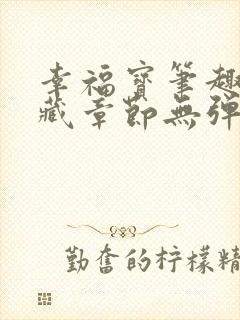 幸福寶筆趣
藏章節無彈
勤奮的柠檬精